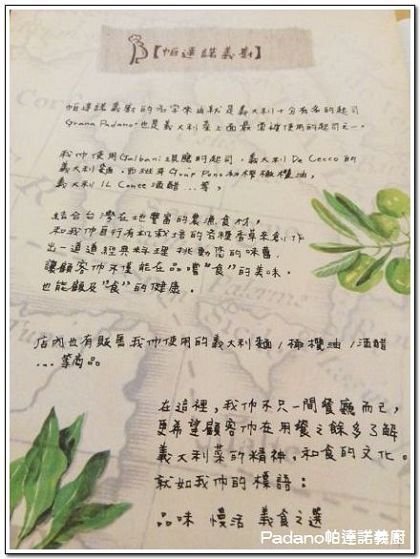 【帕達諾義廚】
帕達諾義廚的名字來由就是義大利十分有名的起司
Grana Padano也是義大利菜上面最常被使用的起司之一。
我們使用Galbani 的起司,義大利 De Cecco 的
義大利麵,西班牙 初榨橄欖油,
義大利 IL 酒醋..等,
結合台灣在地豐富的農漁食材,
和我們自行有机栽培的各種香草來創作
出一道道經典料理 挑動您的味蕾
讓顧客們不僅能在品嚐"食"的美味,
也能顧及"食"的健康.
店內也有販售我們使用的義大利麵/橄欖油/酒醋
... 等商品。
在這裡,我們不只一間餐廳而已,
更希望顧客們在用餐之餘多了解
義大利菜的精神,和食的文化。
就如我們的標語:
品味 慢活 義食之選
Padano帕達諾義廚